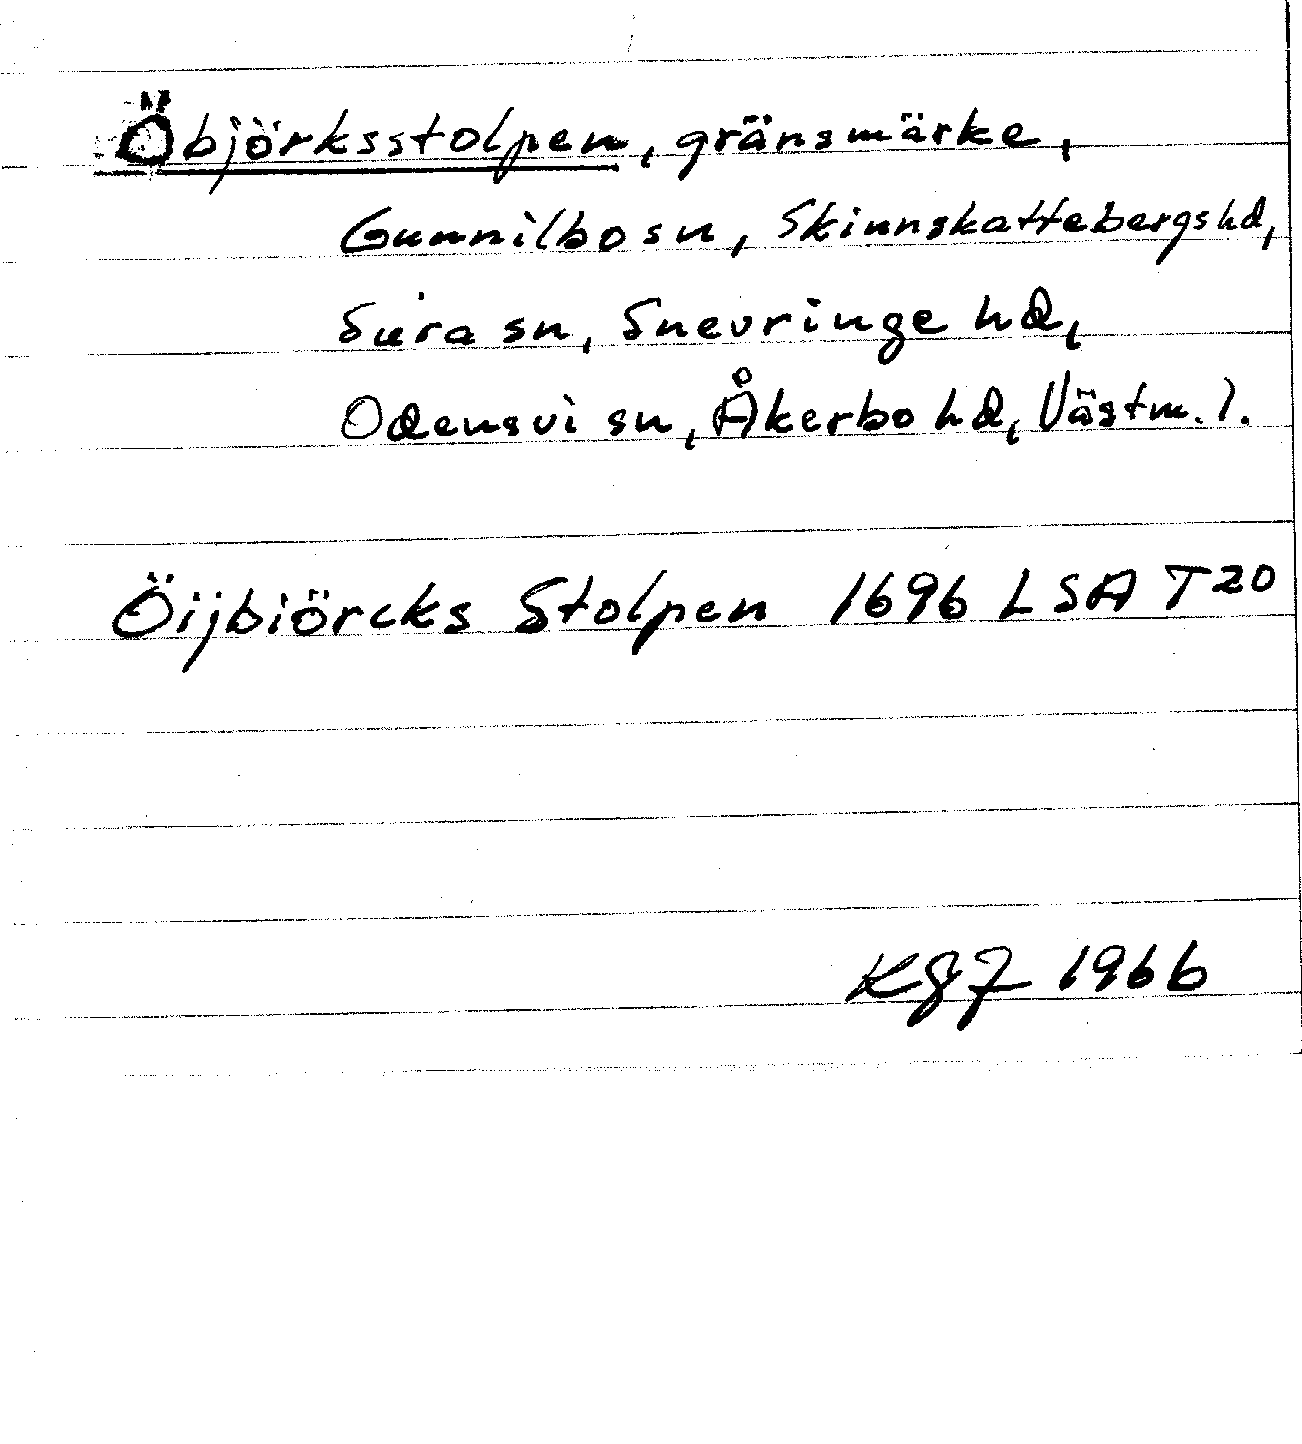 Öbjörksstolpen, gränsmärke,
Gunnilbo sn, Skinnskattebergs hd,
Sura sn, Snevringe hd,
Odensvi sn, Åkerbo hd, Västm. l.
Öijbiörcks Stolpen 1696 LSA T20
1966